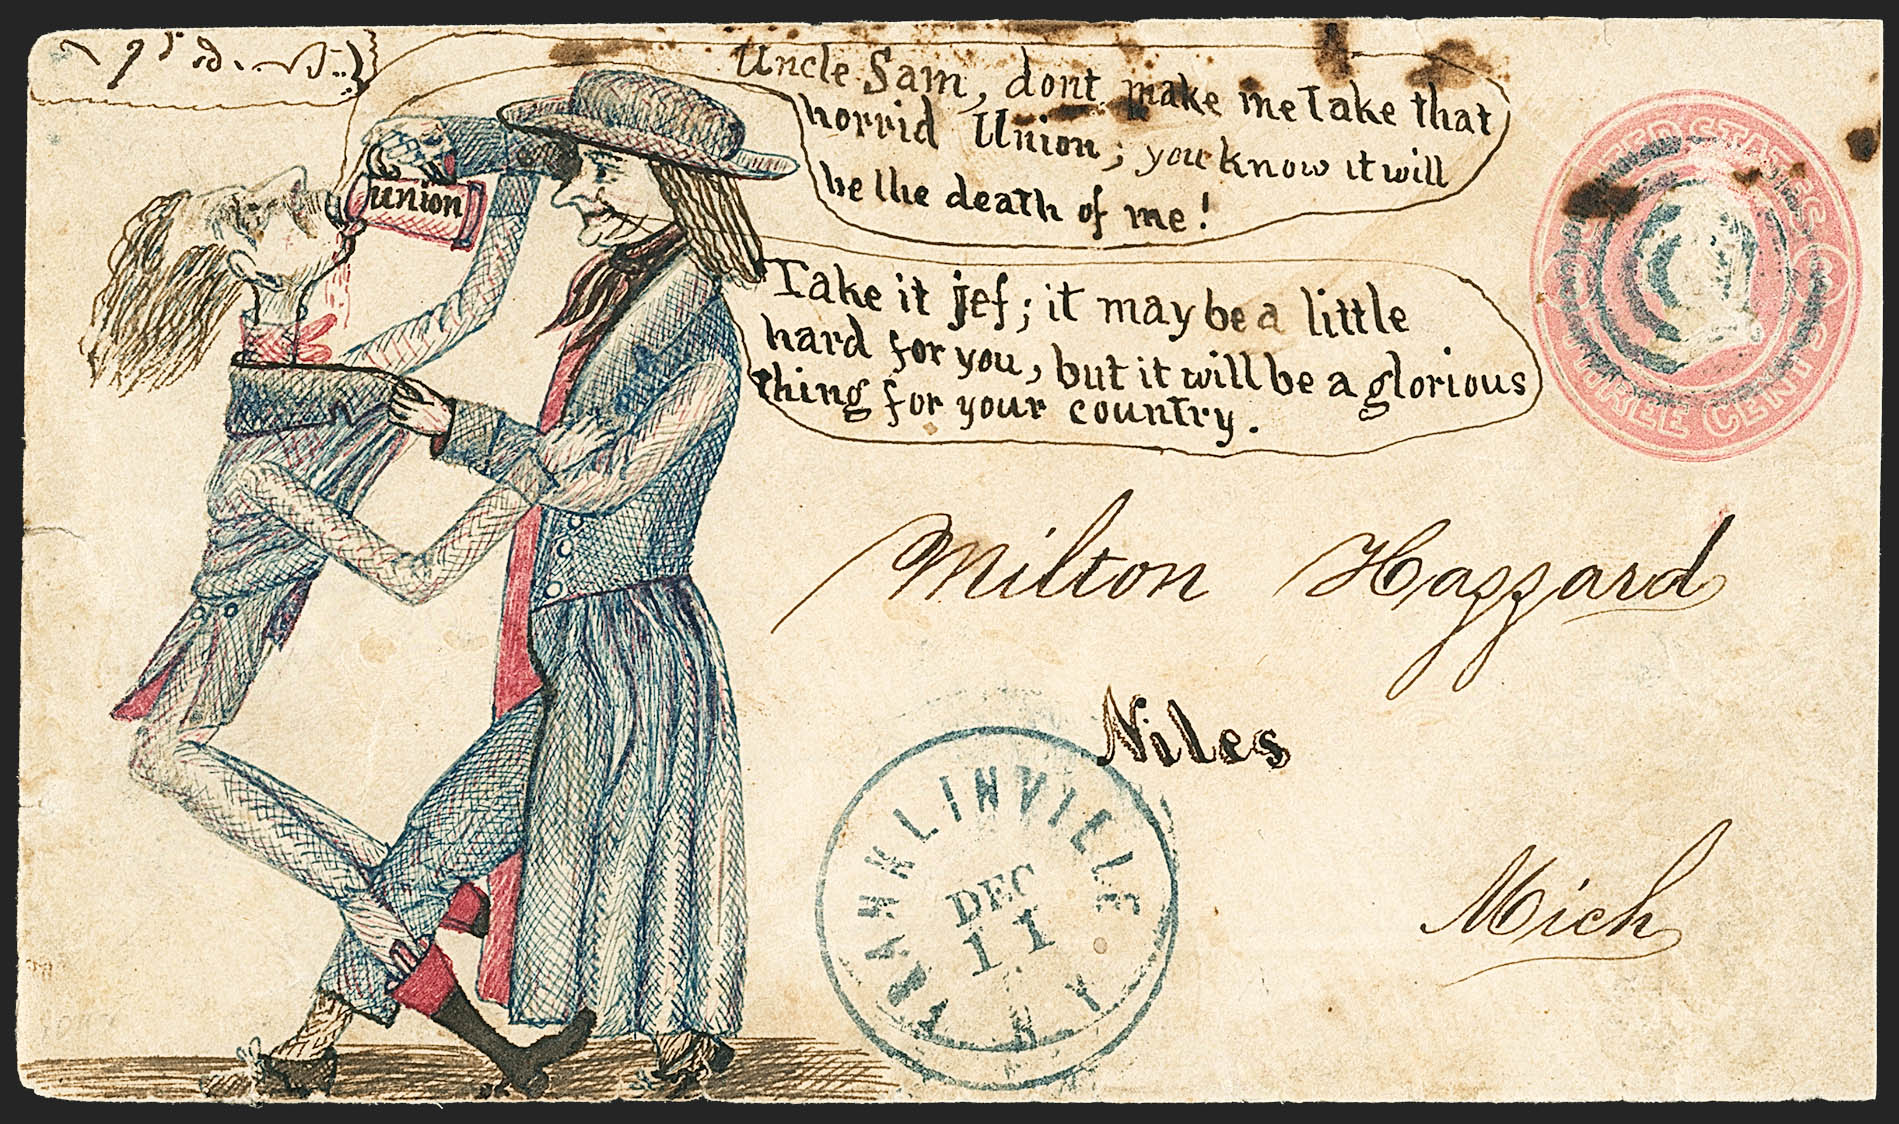 Uncle Sam, dont make me Take that
horrid Union; you know it will
be the death of me!
union
Take it jef; it may be a little
hard for you, but it will be a glorious
thing for your country.
UNITED STATES
THREE CENTS
Milton Hazzard
Niles
Mich
FRANKLINVILLE
DEC
11
N.Y.